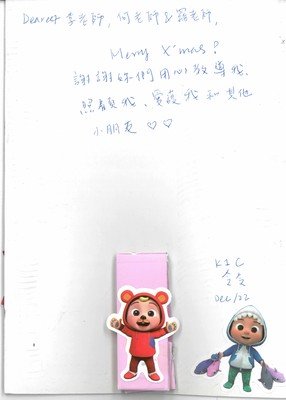 Dearest 李老師, 何老師 & 羅老師,
Merry X'mas!
謝謝妳們用心教導我、
照顧我、愛護我和其他
小朋友 ♡ ♡
K1C
Dec/22